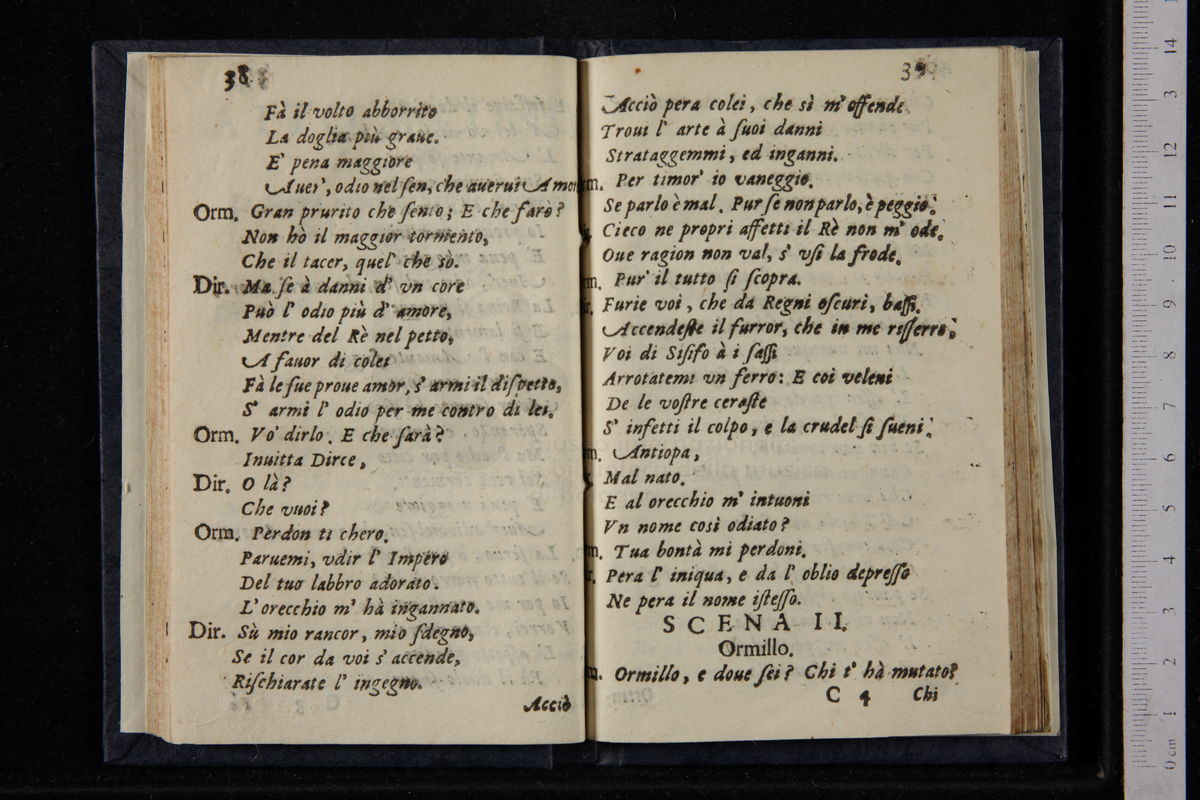 38
Fà il volto abborrito
La doglia più graue.
E' pena maggiore
Auer', odio nel sen, che auerui Amor
Orm. Gran prurito che sento; E che farò?
Non hò il maggior tormento,
Che il tacer, quel' che sò.
Dir. Ma se à danni d' vn core
Può l' odio più d' amore,
Mentre del Rè nel petto,
A fauor di colei
Fà le sue proue amor, s' armi il dispetto,
S' armi l' odio per me contro di lei.
Orm. Vo' dirlo. E che sarà?
Inuitta Dirce,
Dir. O là?
Che vuoi?
Orm. Perdon ti chero.
Paruemi, vdir l' Impero
Del tuo labbro adorato.
L' orecchio m' hà ingannato.
Dir. Sù mio rancor, mio sdegno,
Se il cor da voi s' accende,
Rischiarate l' ingegno.
Acciò
39
Acciò pera colei, che sì m' offende
Troui l' arte à suoi danni
Strataggemmi, ed inganni.
m. Per timor' io vaneggio.
Se parlo è mal. Pur se non parlo, è peggio.
Cieco ne propri affetti il Rè non m' ode.
Oue ragion non val, s' vsi la frode.
m. Pur' il tutto si scopra.
r. Furie voi, che da Regni oscuri, bassi.
Accendeste il furror, che in me risserro,
Voi di Sisifo à i sassi
Arrotatemi vn ferro: E coi veleni
De le vostre ceraste
S' infetti il colpo, e la crudel si sueni.
m. Antiopa,
Mal nato.
E al orecchio m' intuoni
Vn nome così odiato?
m. Tua bontà mi perdoni.
r. Pera l' iniqua, e da l' oblio depresso
Ne pera il nome istesso.
SCENA II.
Ormillo.
m. Ormillo, e doue sei? Chi t' hà mutato?
C 4 Chi
0 cm 1 2 3 4 5 6 7 8 9 10 11 12 3 14